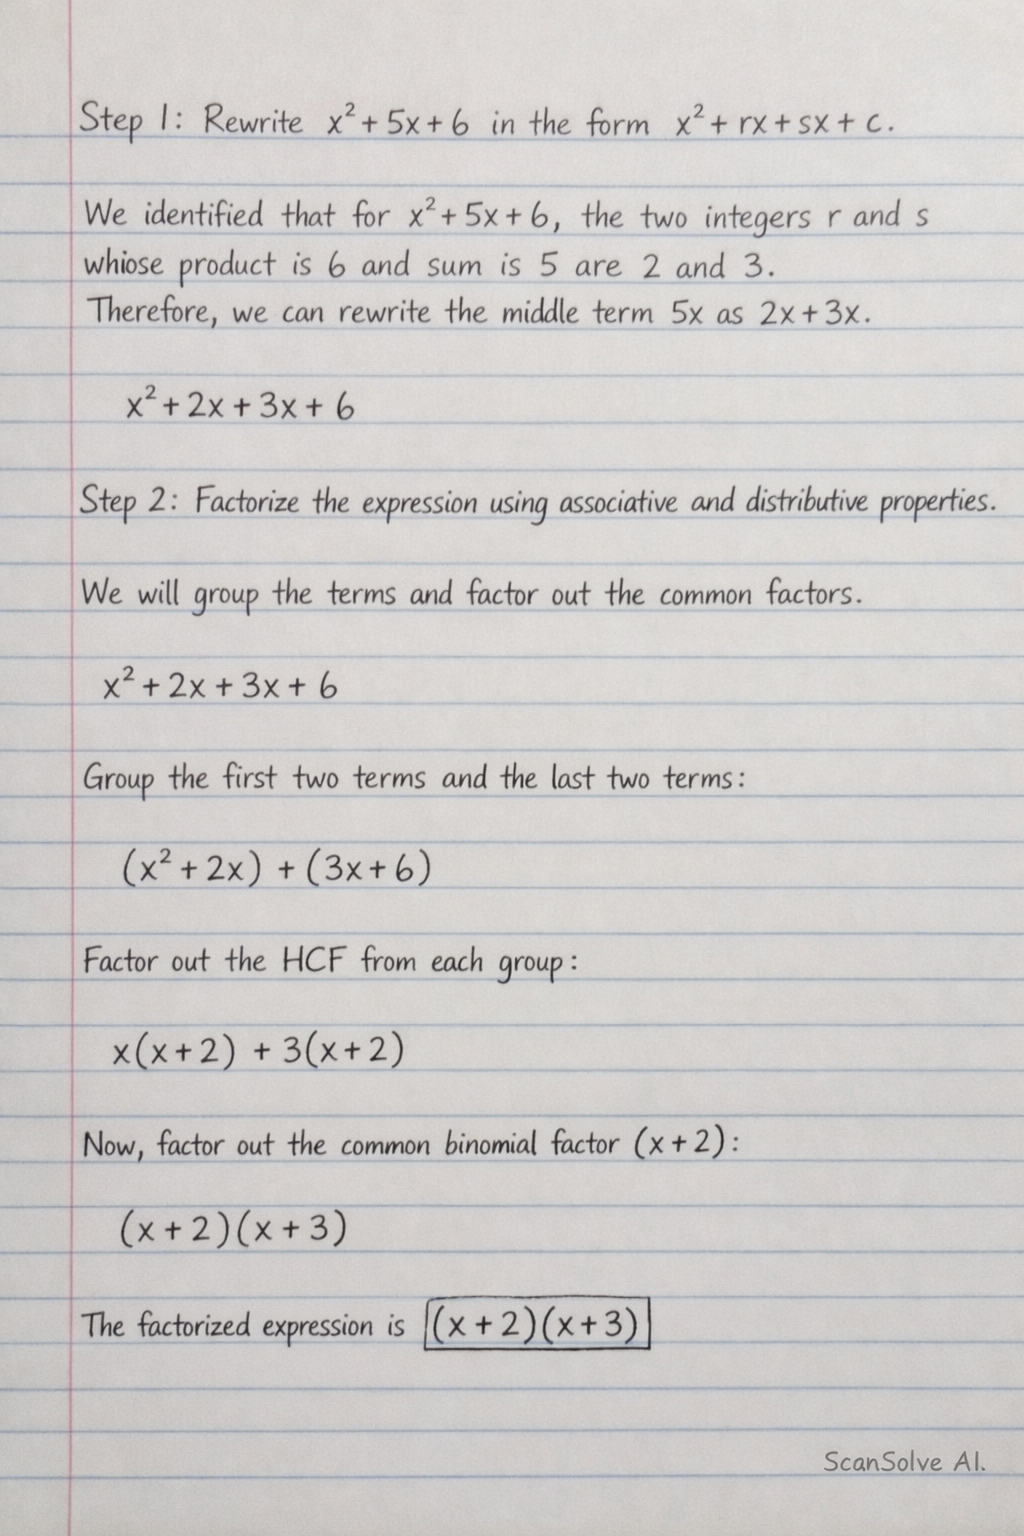 Step 1: Rewrite x² + 5x + 6 in the form x² + rx + sx + c.
We identified that for x² + 5x + 6, the two integers r and s
whiose product is 6 and sum is 5 are 2 and 3.
Therefore, we can rewrite the middle term 5x as 2x + 3x.
x² + 2x + 3x + 6
Step 2: Factorize the expression using associative and distributive properties.
We will group the terms and factor out the common factors.
x² + 2x + 3x + 6
Group the first two terms and the last two terms:
(x² + 2x) + (3x + 6)
Factor out the HCF from each group:
x(x + 2) + 3(x + 2)
Now, factor out the common binomial factor (x + 2):
(x + 2)(x + 3)
The factorized expression is (x + 2)(x + 3)
ScanSolve AI.